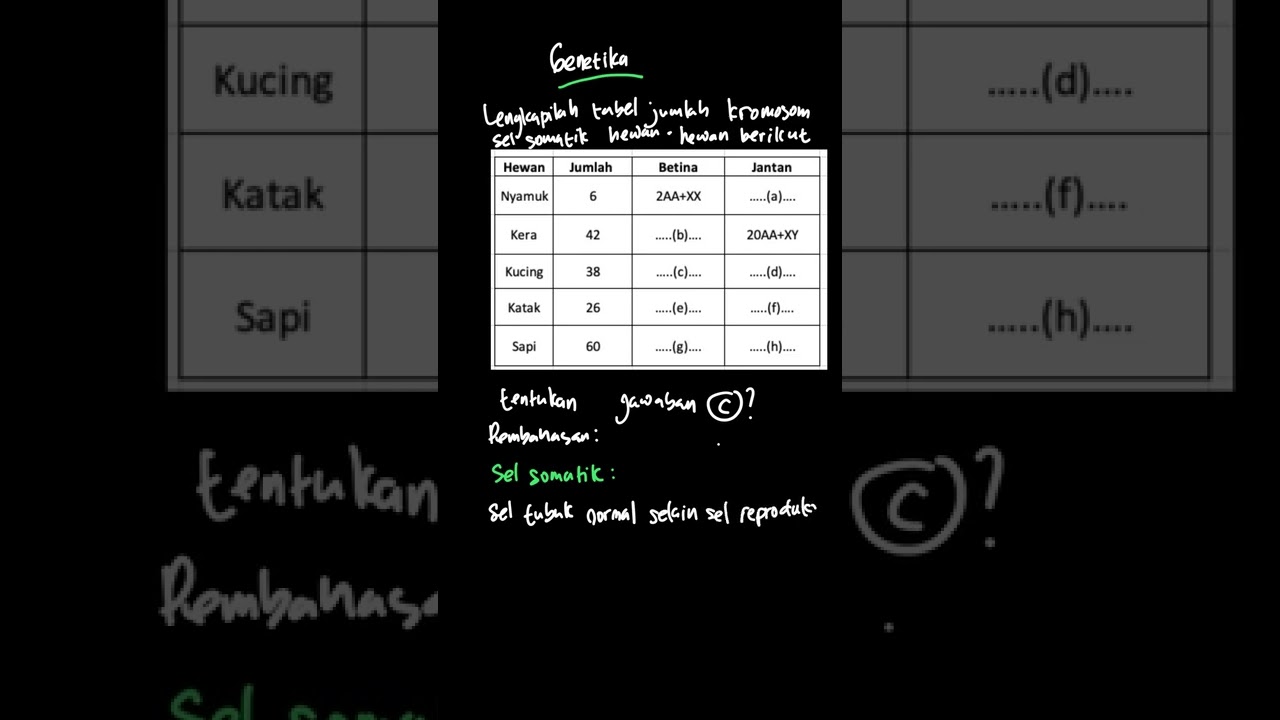 Genetika
Lengkapilah tabel jumlah kromosom
sel somatik hewan-hewan berikut
Hewan Jumlah Betina Jantan
Nyamuk 6 2AA+XX .....(a)....
Kera 42 .....(b).... 20AA+XY
Kucing 38 .....(c).... .....(d)....
Katak 26 .....(e).... .....(f)....
Sapi 60 .....(g).... .....(h)....
tentukan jawaban (c)?
Pembahasan:
Sel somatik:
Sel tubuh normal selain sel reproduksi
Kucing .....(d)....
Katak .....(f)....
Sapi .....(h)....
tentukan (c)?
Pembahasa
Sel soma